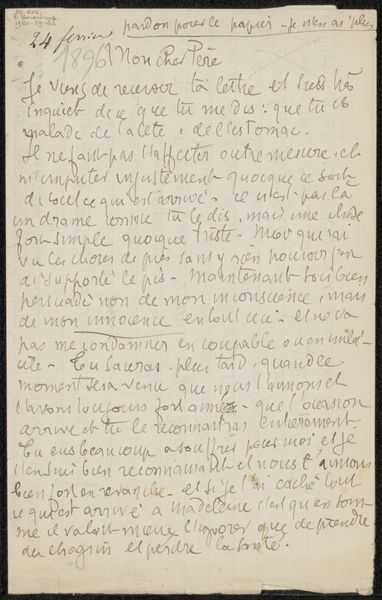 pardon pour le papier - je n'en ai plus
24 fevrier
1896 Mon cher Père
Je viens de recevoir ta lettre et suis très
inquiet de ce que tu me dis : que tu es
malade de la tete, de l'estomac.
Il ne faut pas t'affecter outre mesure, et
m'imputer injustement quoique ce soit
de tout ce qui est arrivé - ce n'est pas là
un drame comme tu le dis, mais une chose
fort simple quoique triste - Moi qui ai
vu les choses de près sans y rien pouvoir j'en
ai supporté le pis - Maintenant sois bien
persuadé non de mon inconscience, mais
de mon innocence en tout ceci - et ne va
pas me condamner en coupable ou en
Tu sauras, plus tard, quand le
moment sera venu que nous t'aimons et
t'avons toujours fort aimé - que l'occasion
arrive et tu le reconnaitras entièrement.
Tu eus beaucoup a souffrir pour moi, et je
t'en suis bien reconnaissant et nous t'aimons
bien fort en revanche - et si je t'ai caché tout
ce qui est arrivé a Madeleine c'est qu'en som-
me il valait mieux l'ignorer que de prendre
du chagrin et perdre la santé.